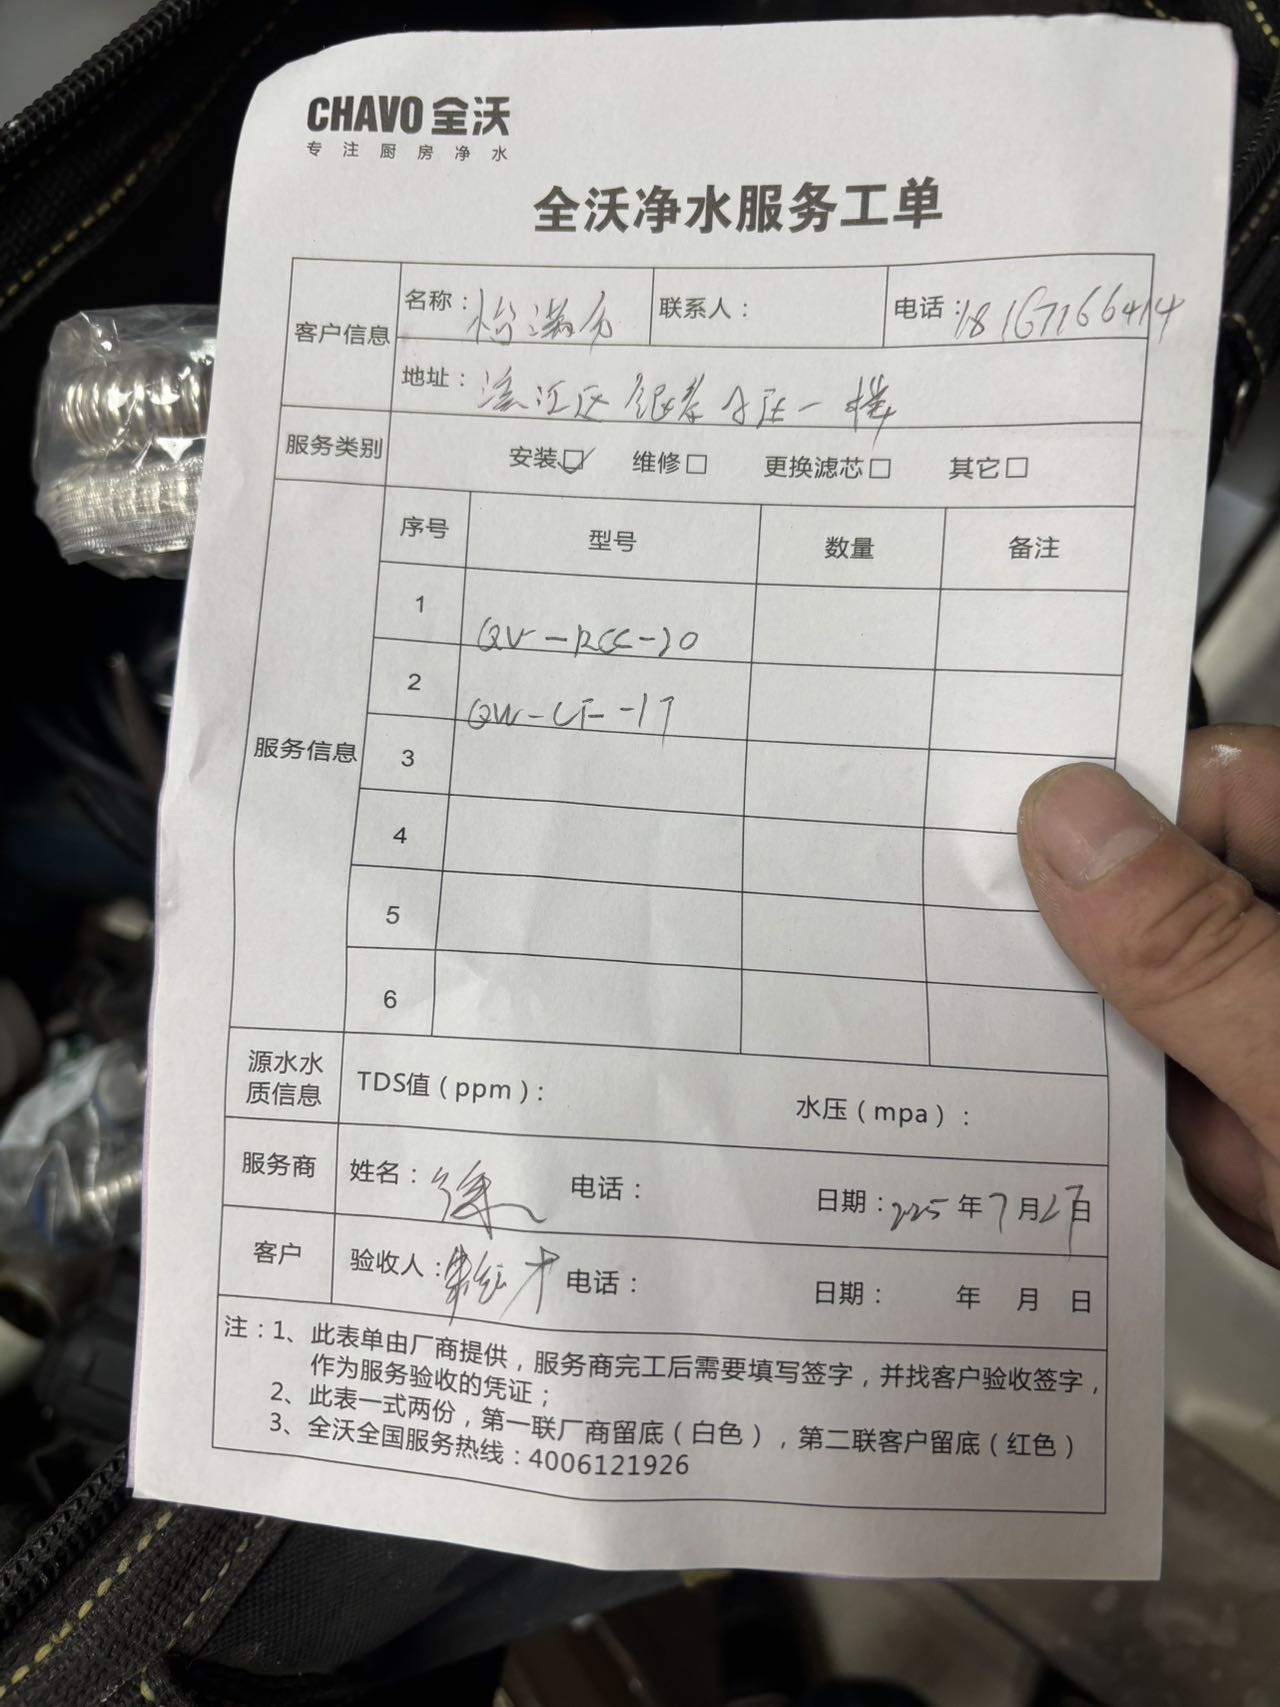 CHAVO 全沃
专注厨房净水
全沃净水服务工单
客户信息
名称：怡满分
联系人：
电话：18167166414
地址：滨江区银泰 一楼
服务类别
安装☑ 维修□ 更换滤芯□ 其它□
服务信息
序号 型号 数量 备注
1
2 QW-LF-17
3
4
5
6
源水水质信息
TDS值（ppm）：
水压（mpa）：
服务商
姓名：徐
电话：
日期：2025年7月 日
客户
验收人：
电话：
日期： 年 月 日
注：1、此表单由厂商提供，服务商完工后需要填写签字，并找客户验收签字，
作为服务验收的凭证；
2、此表一式两份，第一联厂商留底（白色），第二联客户留底（红色）
3、全沃全国服务热线：4006121926